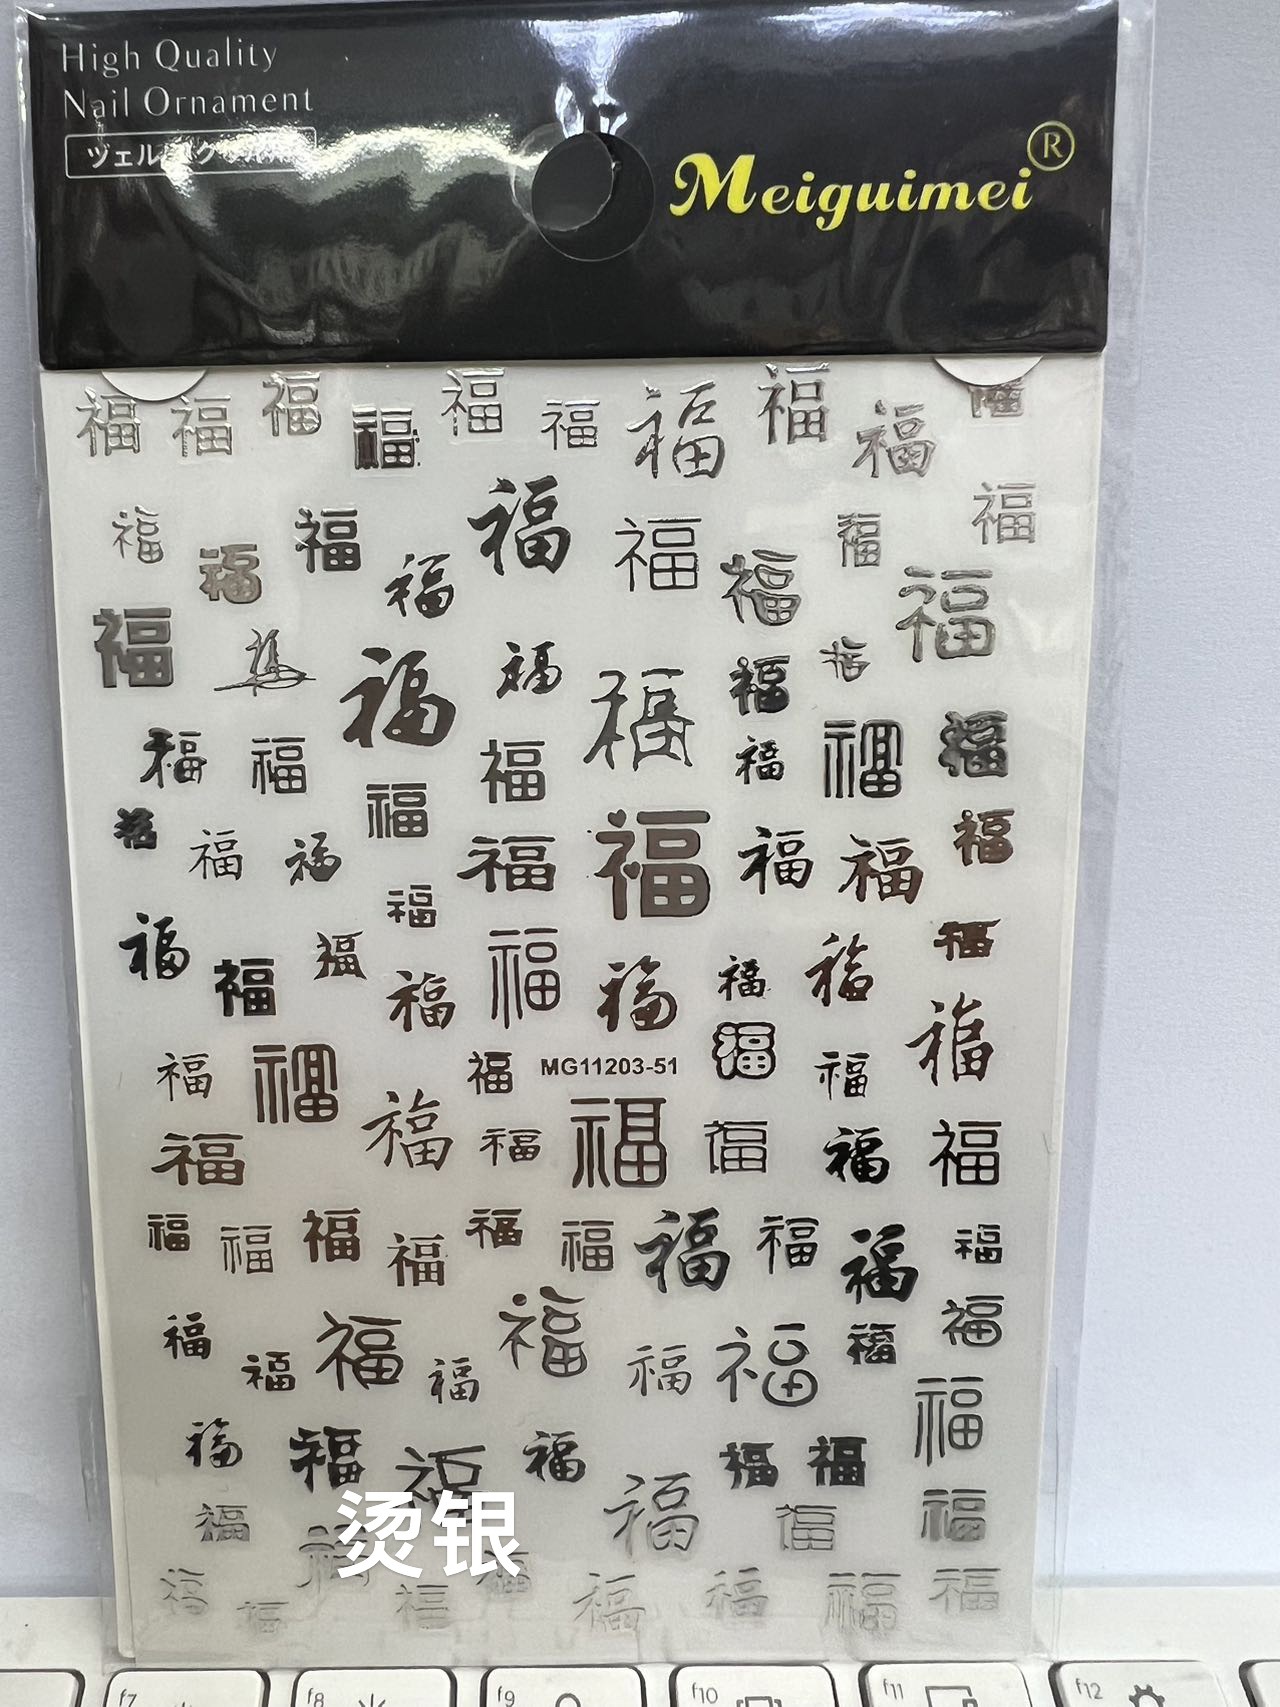 High Quality
Nail Ornament
Meiguimei®
福 福 福 福 福 福 福 福 福 福
福 福 福 福 福 福 福 福 福
福 福 福 福 福 福 福 福
福 福 福 福 福 福 福
福 福 福 福 福 福 福 福
福 福 福 福 福 福 福 福
福 福 福 MG11203-51 福 福 福
福 福 福 福 福 福 福
福 福 福 福 福 福 福 福 福 福
福 福 福 福 福 福 福 福 福
福 福 福 福 福 福 福
烫银
福 福 福 福
福 福 福 福 福 福
f7 f8 f9 f10 f11 f12